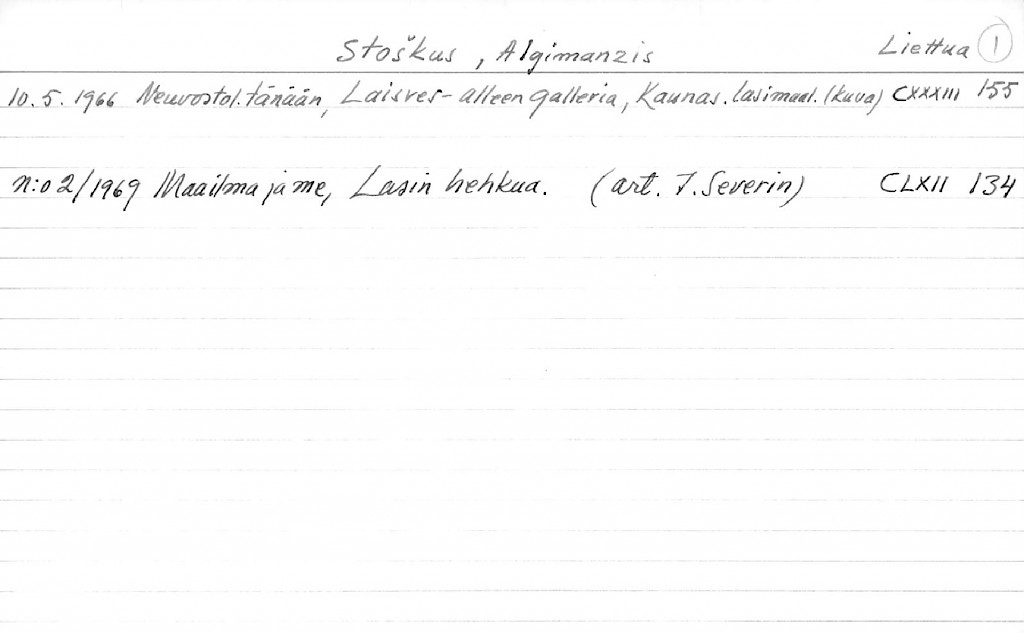 Stoškus, Algimanzis Liettua 1
10.5.1966 Neuvostol. tänään, Laisves-alleen galleria, Kaunas. lasimaal. (kuva) CXXXIII 155
n:o 2/1969 Maailma ja me, Lasin hehkua. (art. J. Severin) CLXII 134